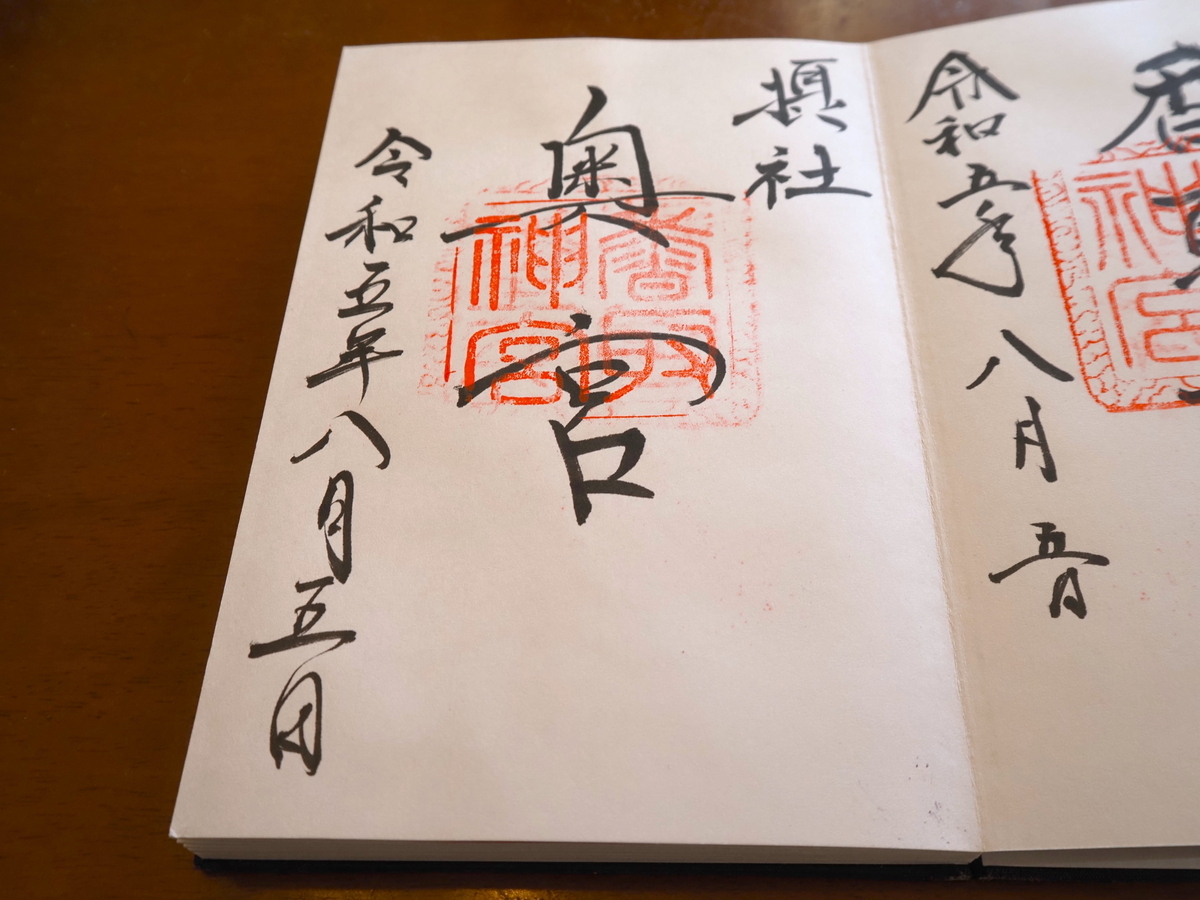 神宮
令和五年八月五日
摂社
奥宮
香取
神宮
令和五年八月五日